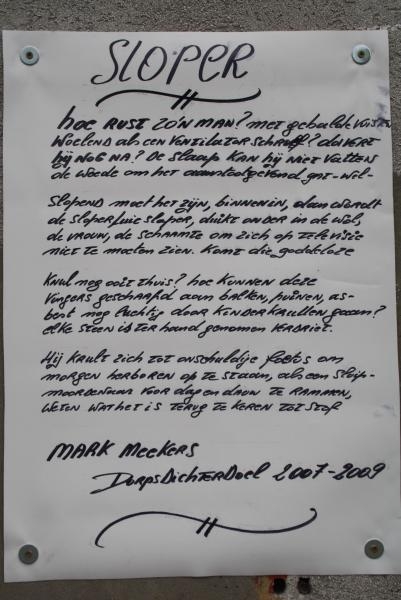 SLOPER
hoe RUST ZO'N MAN? met gebalde vuisten
Woelend als een ventilatorschroef? davert
hij nog na? De slaap kan hij niet vatten
de woede om het aanstootgevend gat-wil-
Slopend moet het zijn, binnenin, dan wordt
de sloper luie sloper, duikt onder in de wol,
de vrouw, de schaamte om zich op televisie
niet te moeten zien. Komt die goddeloze
Knul nog ooit thuis? hoe kunnen deze
vingers geschaafd aan balken, puinen, as-
best nog luchtig door kinderkrullen gaan?
elke steen is ter hand genomen verdriet.
Hij krult zich tot onschuldige foetus om
morgen herboren op te staan, als een sluip-
moordenaar voor dag en dauw te rammen,
weten wat het is terug te keren tot stof
MARK MEEKERS
DorpsDichter Doel 2007-2009